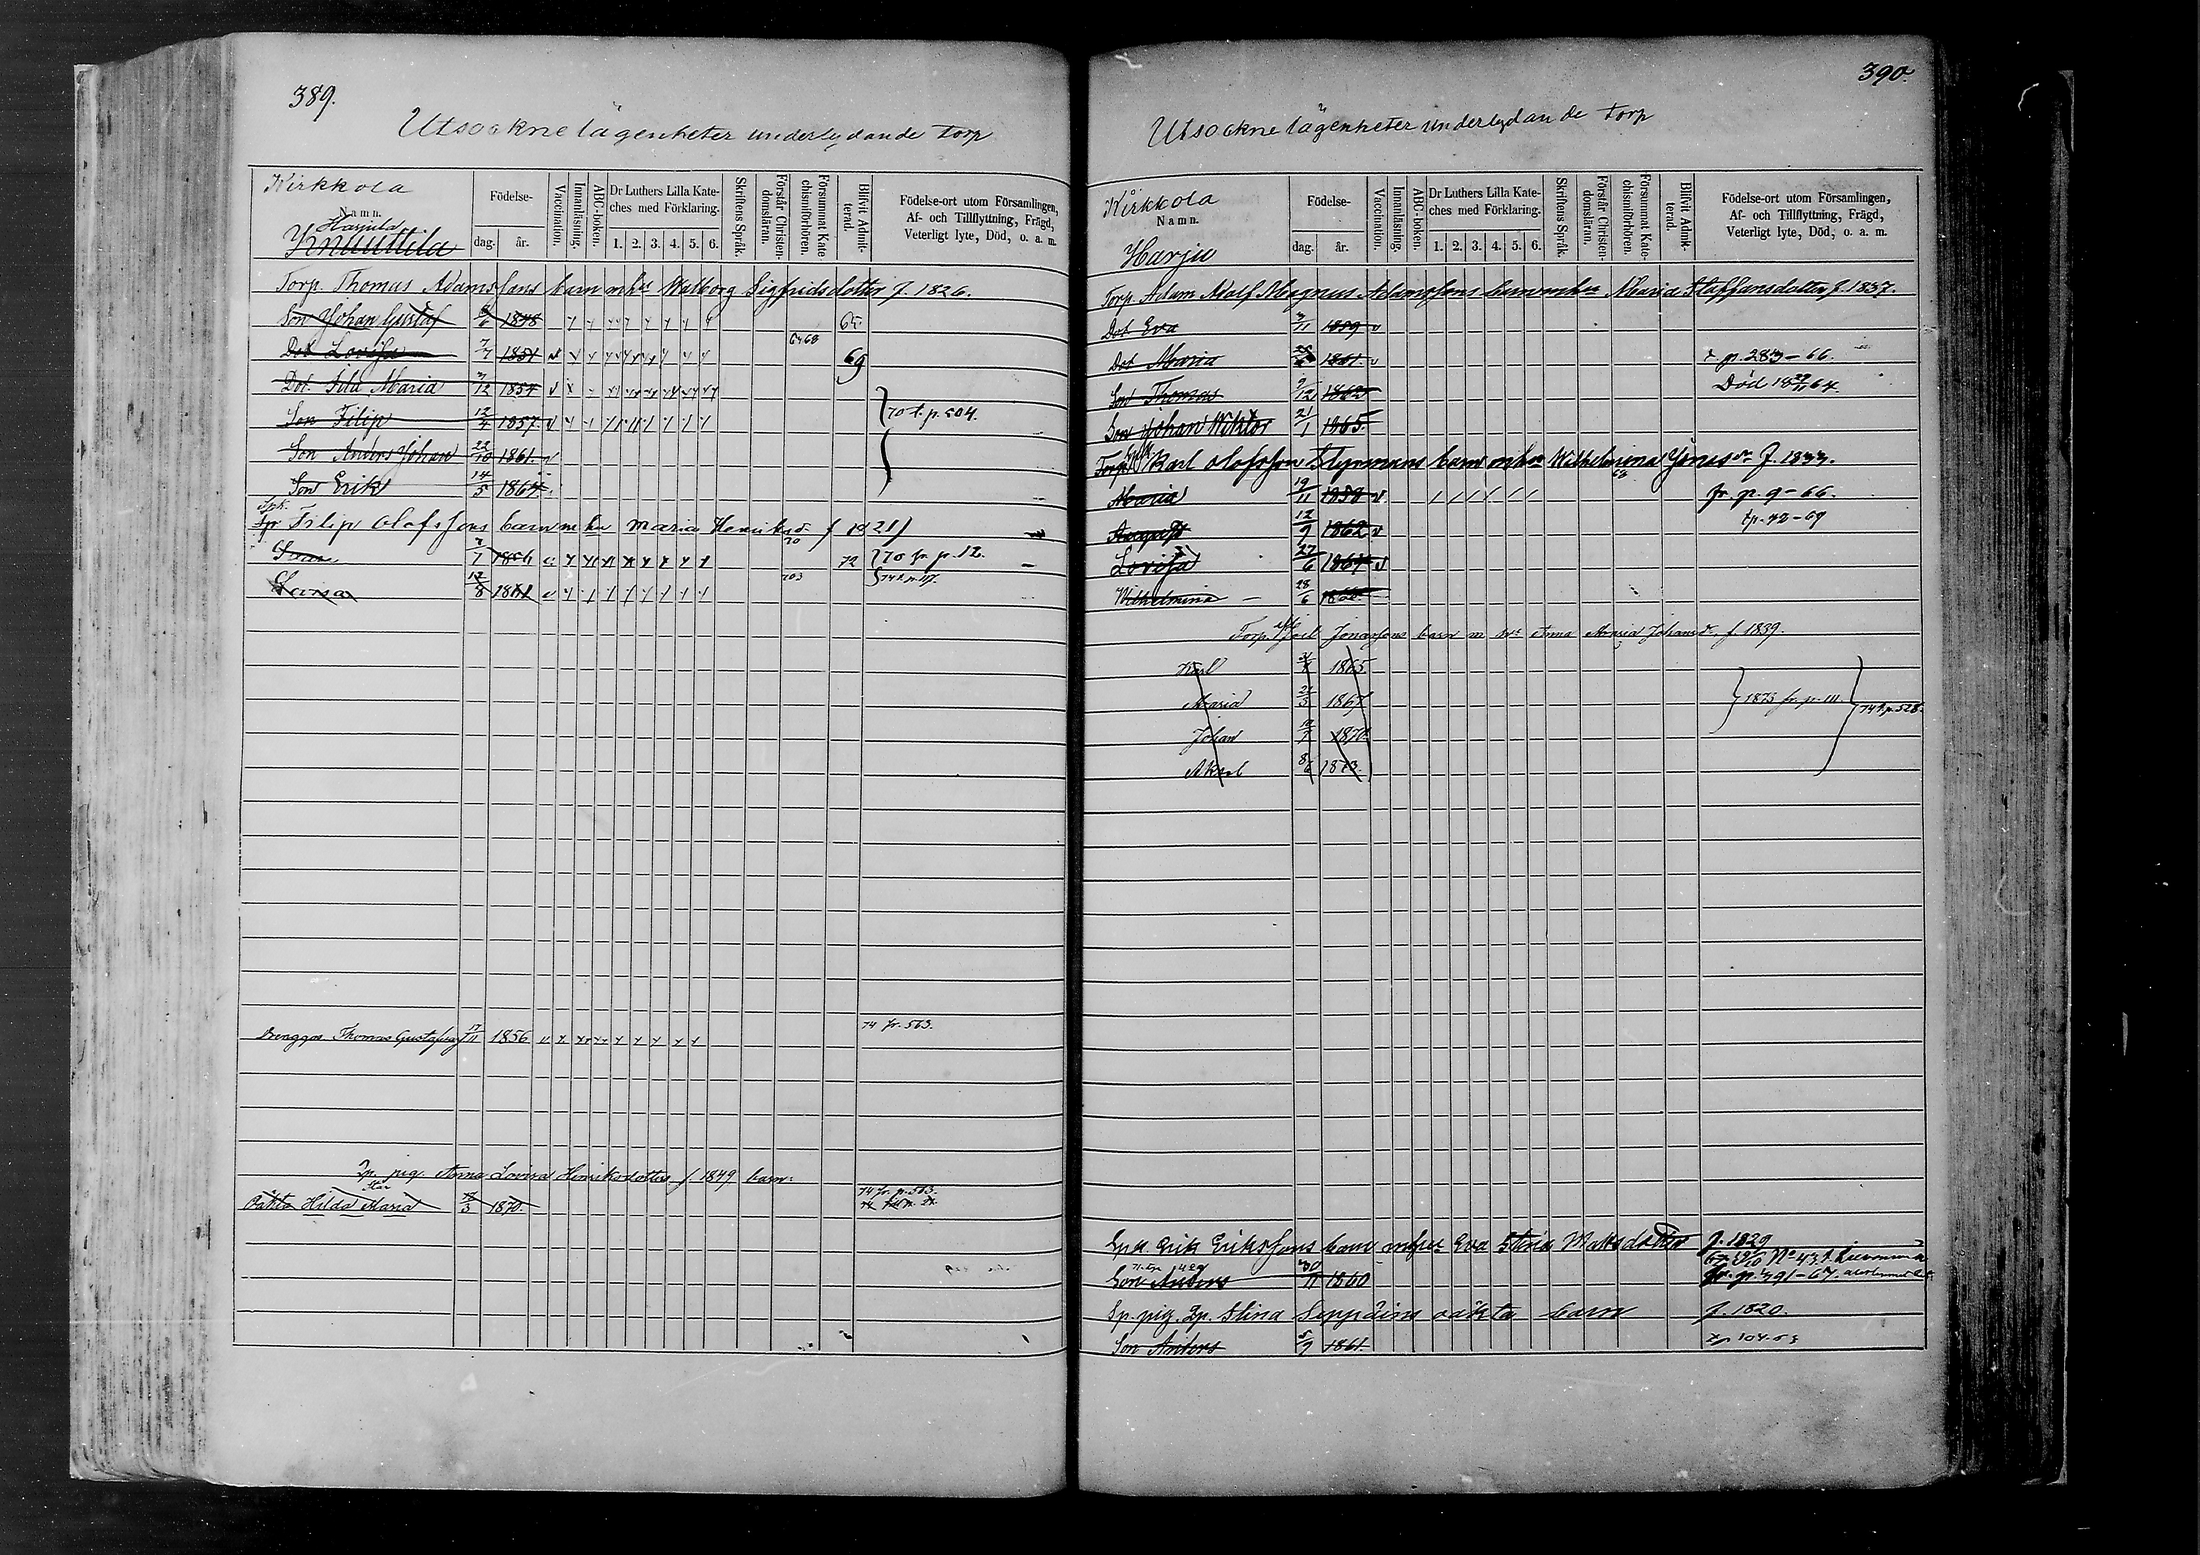 389.
Utsockne lägenheter underlydande torp
Kirkkola
Namn.
Harjula
Knuuttila
Födelse-
dag. år.
Vaccination.
Innanläsning.
ABC-boken.
Dr Luthers Lilla Kate-
ches med Förklaring.
1. 2. 3. 4. 5. 6.
Skriftens Språk.
Förstår Christen-
domsläran.
Försummat Kate-
chismiförhören.
Blifvit Admit-
terad.
Födelse-ort utom Församlingen,
Af- och Tillflyttning, Frägd,
Veterligt lyte, Död, o. a. m.
Torp. Thomas Adamssons barn mhu Walborg Sigfridsdotter f. 1826.
Son Johan Gustaf 1848 65
Dot Lovisa 7/7 1851 67 68 69
Dot. Fila Maria 1854
Son Filip 12/4 1857 70 t. p. 504.
Son Anders Johan 22/10 1861
Son Erik 14/5 1864
Filip Olofssons barn m hu Maria Henriksdr f 1821
1856 72 70 fr p. 12.
Lovisa 12/8 1861 74 t. p. 117.
Drenggos. Thomas Gustafson 17/11 1856 74 fr. 563.
In. pig. Anna Lovisa Henriksdotter f. 1849 barn:
Oäkta Hilda Maria 3 1870. 74 fr. p. 563.
390.
Utsockne lägenheter underlydande torp
Kirkkola
Namn.
Harju
Födelse-
dag. år.
Vaccination.
Innanläsning.
ABC-boken.
Dr Luthers Lilla Kate-
ches med Förklaring.
1. 2. 3. 4. 5. 6.
Skriftens Språk.
Förstår Christen-
domsläran.
Försummat Kate-
chismiförhören.
Blifvit Admit-
terad.
Födelse-ort utom Församlingen,
Af- och Tillflyttning, Frägd,
Veterligt lyte, Död, o. a. m.
Torp. Adam Adolf Magnus Adamssons barn mhu Maria Staffansdotter f. 1837.
Dot Eva 11 1859
Dot Maria 1861. t. p. 283 - 66.
Son Thomas 9/12 1862 Död 18 29/11 64
Son Johan Wiktor 21/1 1865.
Torp. Karl Olofsson Styrmans barn mhu Wilhelmina Jönsdr f. 1833.
Maria 19/11 1858 fr. p. 9 - 66.
August 12/9 1862 tp. 42 - 69
Lovisa 27/6 1864
Wilhelmina 28/6
Torp. Joel Jonassons barn m hu Anna Maria Johansdr. f. 1839.
Karl 1865
Maria 1867 1873 fr. p. 111. 74 t. p. 528.
Johan 1870
Axel 8/6 1873.
Erik Erikssons barn mhu Eva Stina Matsdotter f. 1829
Son Anders 30/11 1860 fr. p. 391 - 67.
Sp. pig. Sp. Stina Seppäins oäkta barn f. 1820.
Son Anders 5/9 1861.